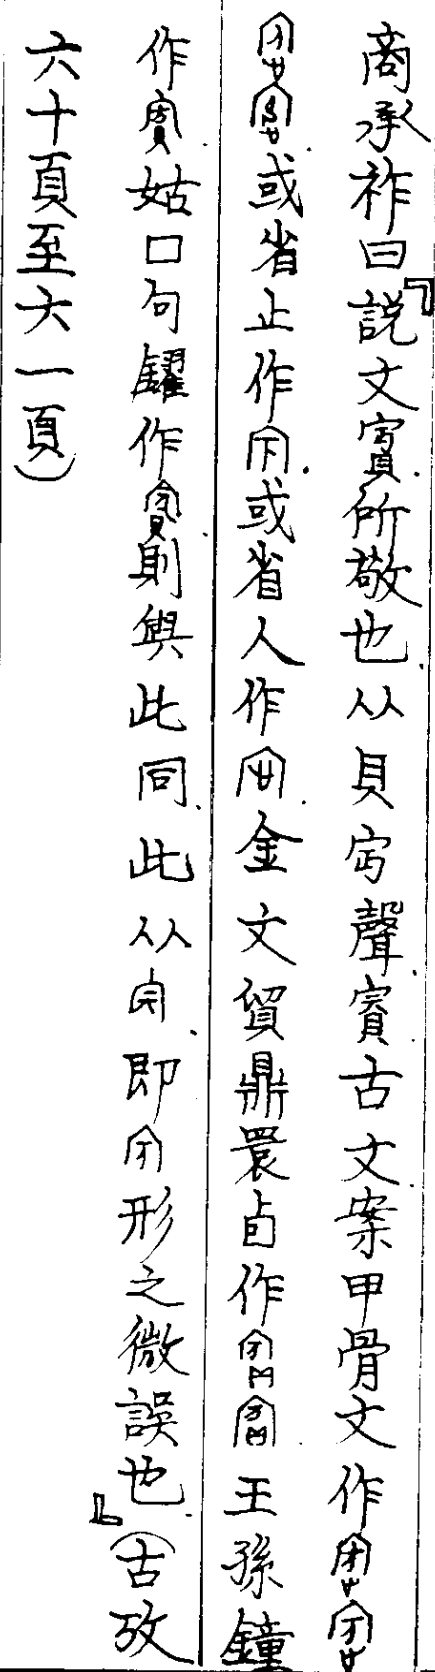 商承祚曰『説文賓所敬也从貝宀聲賔古文案甲骨文作
或省止作或省人作金文貿鼎睘卣作王孫鐘
作賓姑口句鑃作則與此同此从即形之微誤也』（古攷
六十頁至六一頁）